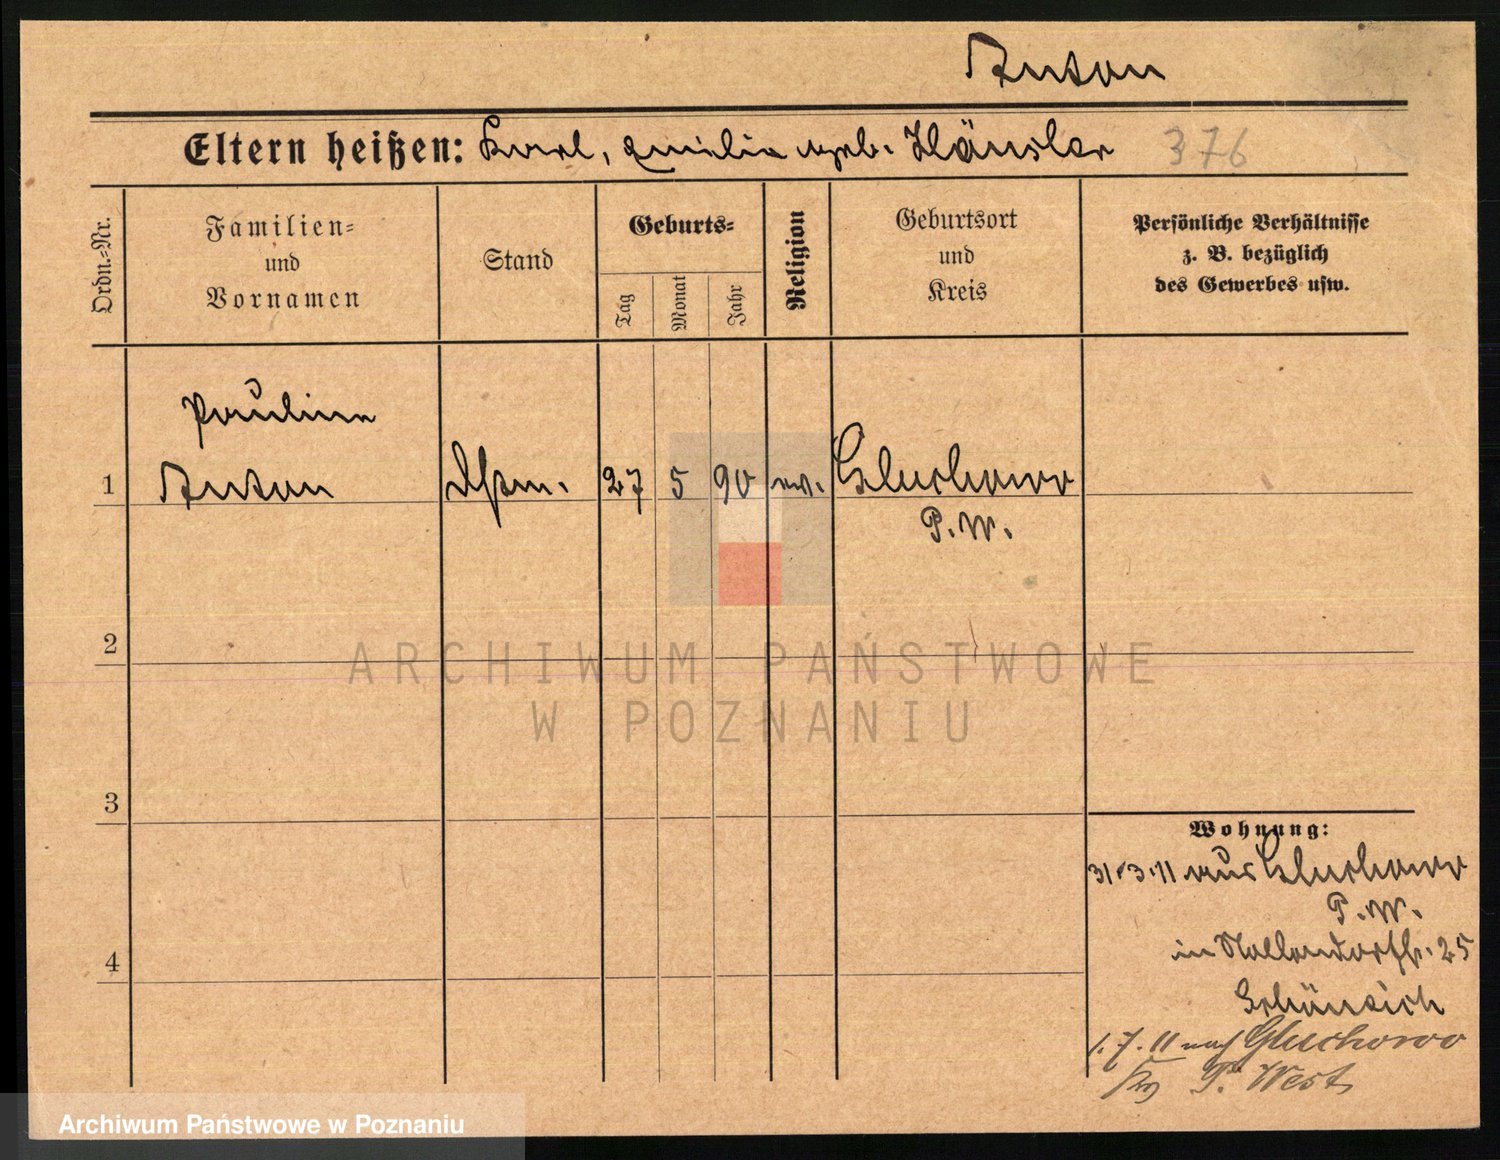 Anton
Eltern heißen: Karl, Emilie geb. Hänsler 376
Ordn.-Nr.
Familien-
und
Vornamen
Stand
Geburts-
Tag
Monat
Jahr
Religion
Geburtsort
und
Kreis
Persönliche Verhältnisse
z. B. bezüglich
des Gewerbes usw.
Pauline
1 Anton 27 5 90 ev. Gluchowo
P. W.
2
3
4
Wohnung:
31.3.11 aus Gluchowo
P. W.
in Nollendorfstr. 25
1.7.11 nach Gluchowo
Krs P. West
ARCHIWUM PAŃSTWOWE
W POZNANIU
Archiwum Państwowe w Poznaniu